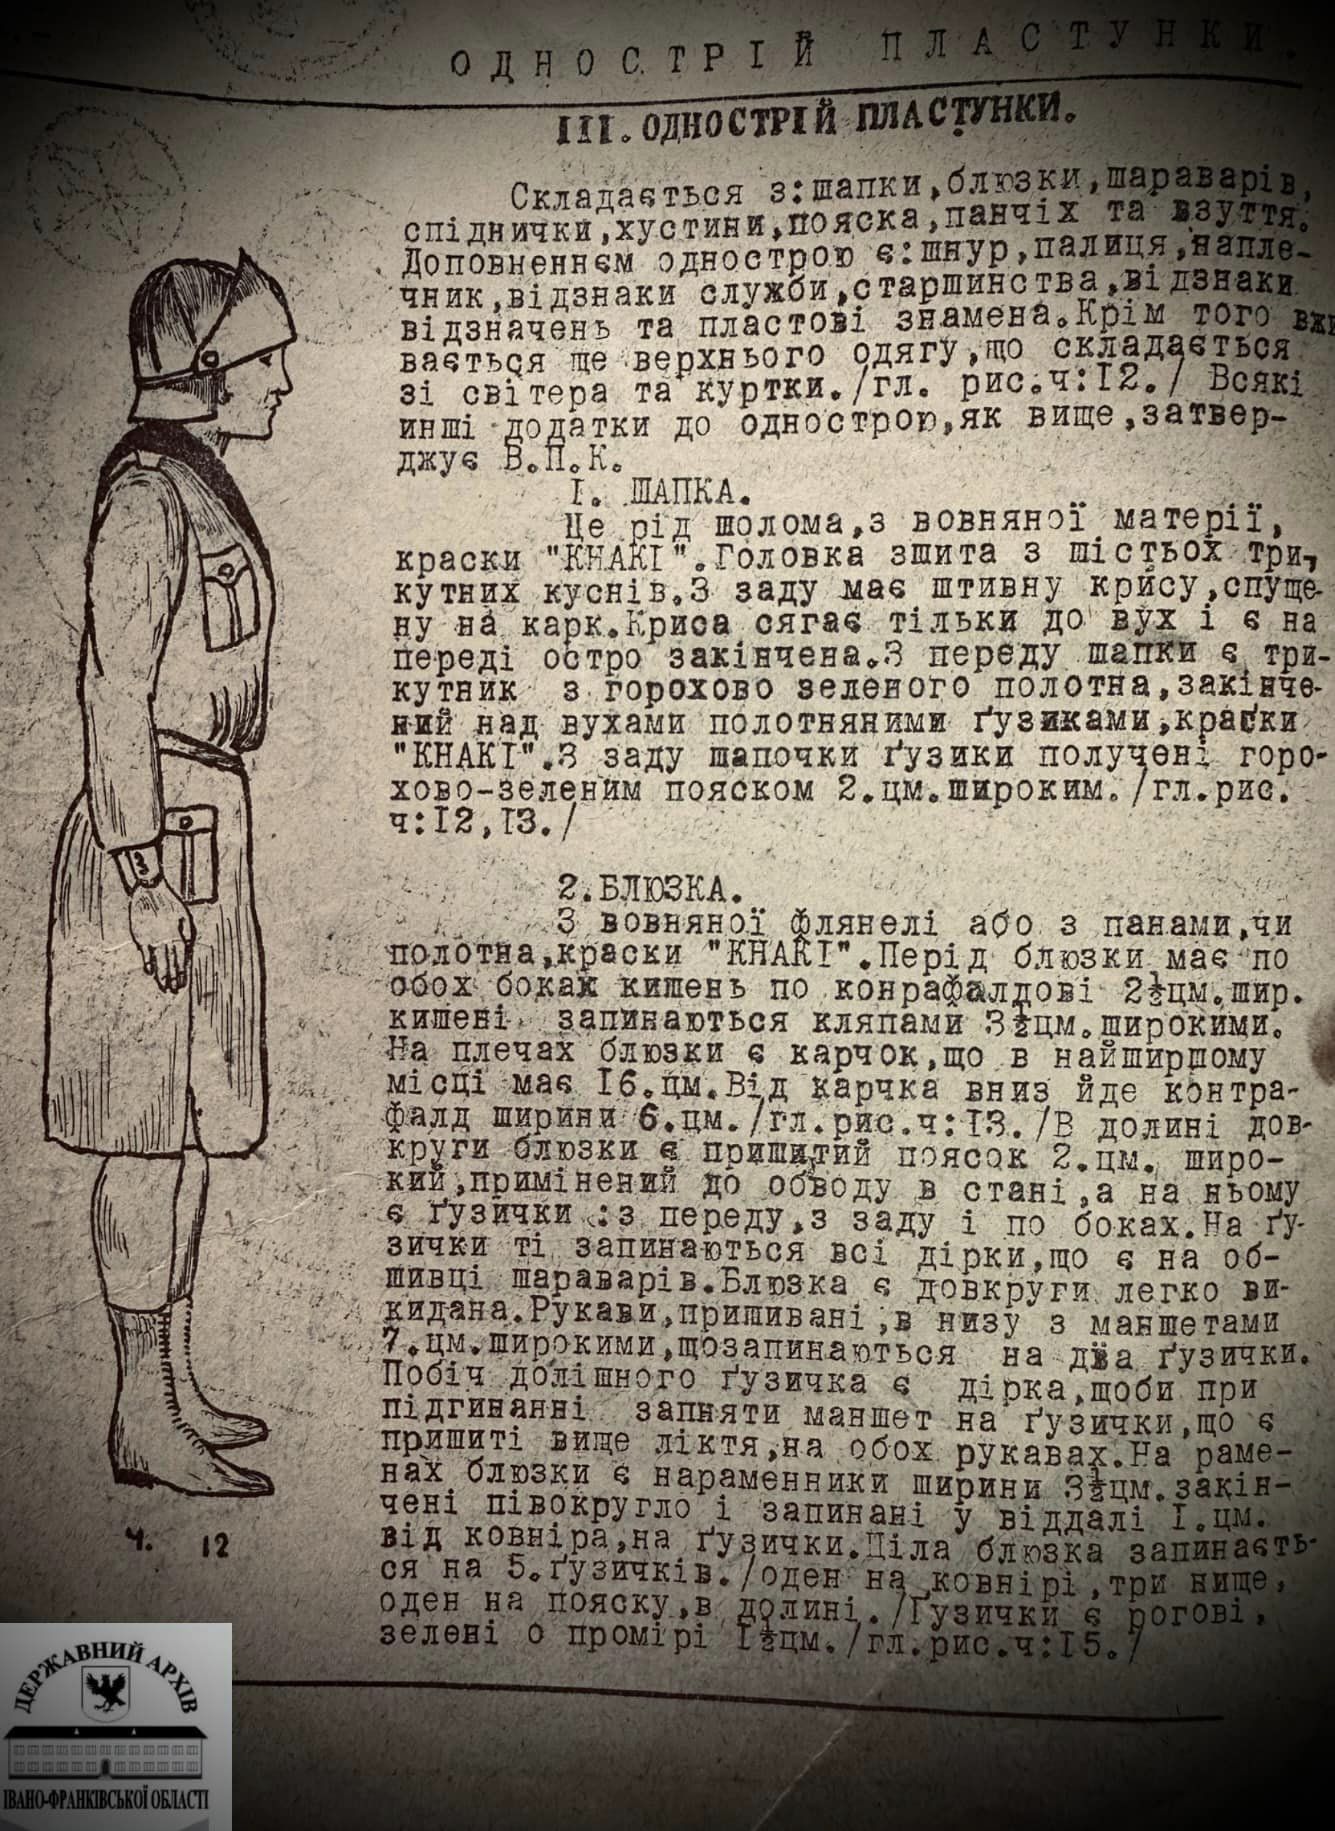 ОДНОСТРІЙ ПЛАСТУНКИ.
ІІІ. ОДНОСТРІЙ ПЛАСТУНКИ.
Складається з:шапки,блюзки,шараварів,
спіднички,хустини,пояска,панчіх та взуття.
Доповненнєм однострою є:шнур,палиця,напле-
чник,відзнаки служби,старшинства,відзнаки
відзначень та пластові знамена.Крім того вжи
вається ще верхнього одягу,що складається
зі світера та куртки./гл. рис.ч:І2./ Всякі
инші додатки до однострою,як вище,затвер-
джує В.П.К.
І. ШАПКА.
Це рід шолома,з вовняної матерії,
краски "КНАКІ".Головка зшита з шістьох три-
кутних куснів.З заду має штивну крису,спуще-
ну на карк.Криса сягає тільки до вух і є на
переді остро закінчена.З переду шапки є три-
кутник з горохово зеленого полотна,закінче-
ний над вухами полотняними ґузиками,краски
"КНАКІ".З заду шапочки ґузики получені горо-
хово-зеленим пояском 2.цм.широким./гл.рис.
ч:І2,І3./
2.БЛЮЗКА.
З вовняної флянелі або з панами,чи
полотна,краски "КНАКІ".Перід блюзки має по
обох боках кишень по конрафалдові 2½цм.шир.
кишені запинаються кляпами 3½цм.широкими.
На плечах блюзки є карчок,що в найширшому
місці має І6.цм.Від карчка вниз йде контра-
фалд ширини 6.цм./гл.рис.ч:І3./В долині дов-
круги блюзки є пришитий поясок 2.цм. широ-
кий,примінений до обводу в стані,а на ньому
є ґузички :з переду,з заду і по боках.На ґу-
зички ті запинаються всі дірки,що є на об-
шивці шараварів.Блюзка є довкруги легко ви-
кидана.Рукави,пришивані,в низу з маншетами
7.цм.широкими,щозапинаються на два ґузички.
Побіч долішного ґузичка є дірка,щоби при
підгинанні запняти маншет на ґузички,що є
пришиті вище ліктя,на обох рукавах.На раме-
нах блюзки є нараменники ширини 3½цм.закін-
чені півокругло і запинані у віддалі І.цм.
від ковніра,на ґузички.Ціла блюзка запинаєть-
ся на 5.ґузичків./оден на ковнірі,три нище,
оден на пояску,в долині./Ґузички є рогові,
зелені о промірі І½цм./гл.рис.ч:І5./
Ч. 12
ДЕРЖАВНИЙ АРХІВ
ІВАНО-ФРАНКІВСЬКОЇ ОБЛАСТІ